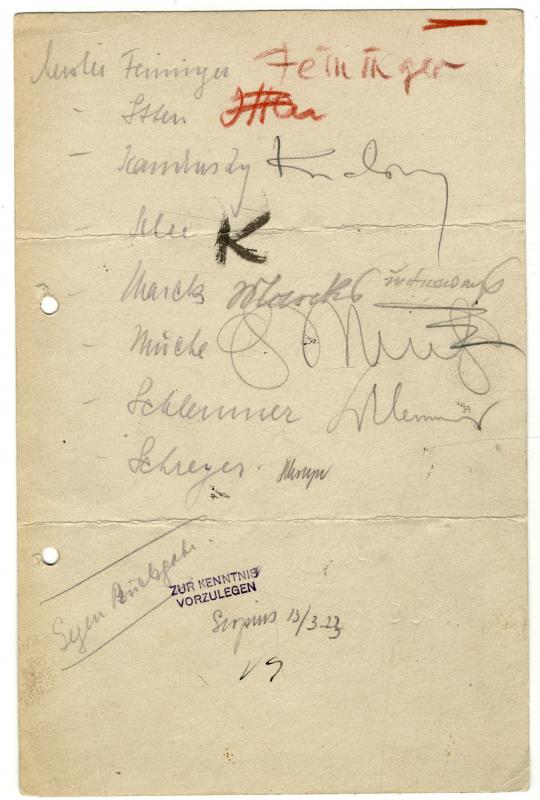 Meister Feininger Feininger
- Itten Itten
- Kandinsky Kandinsky
- Klee K
- Marcks Marcks
- Muche Muche
- Schlemmer Schlemmer
Schreyer. Schreyer
Gegen Rückgabe.
ZUR KENNTNIS
VORZULEGEN
Gropius 13/3.23